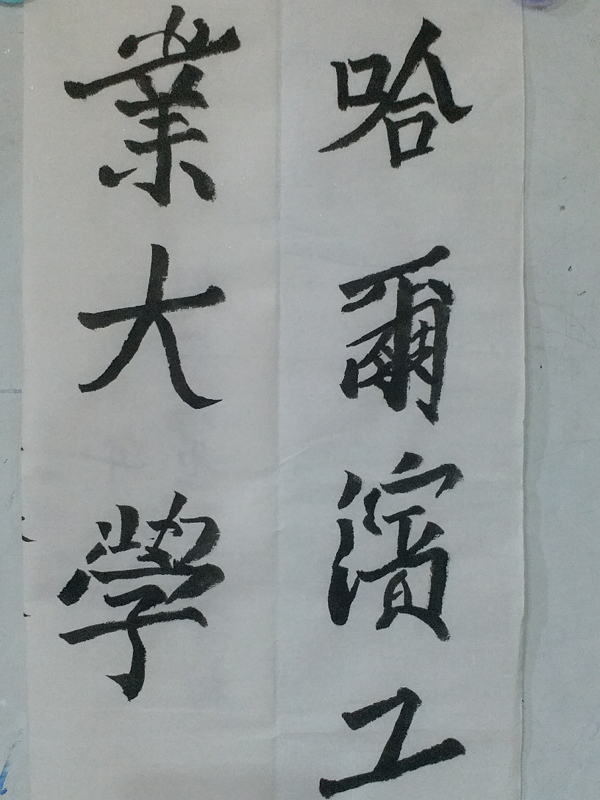 哈爾濱工
業大學